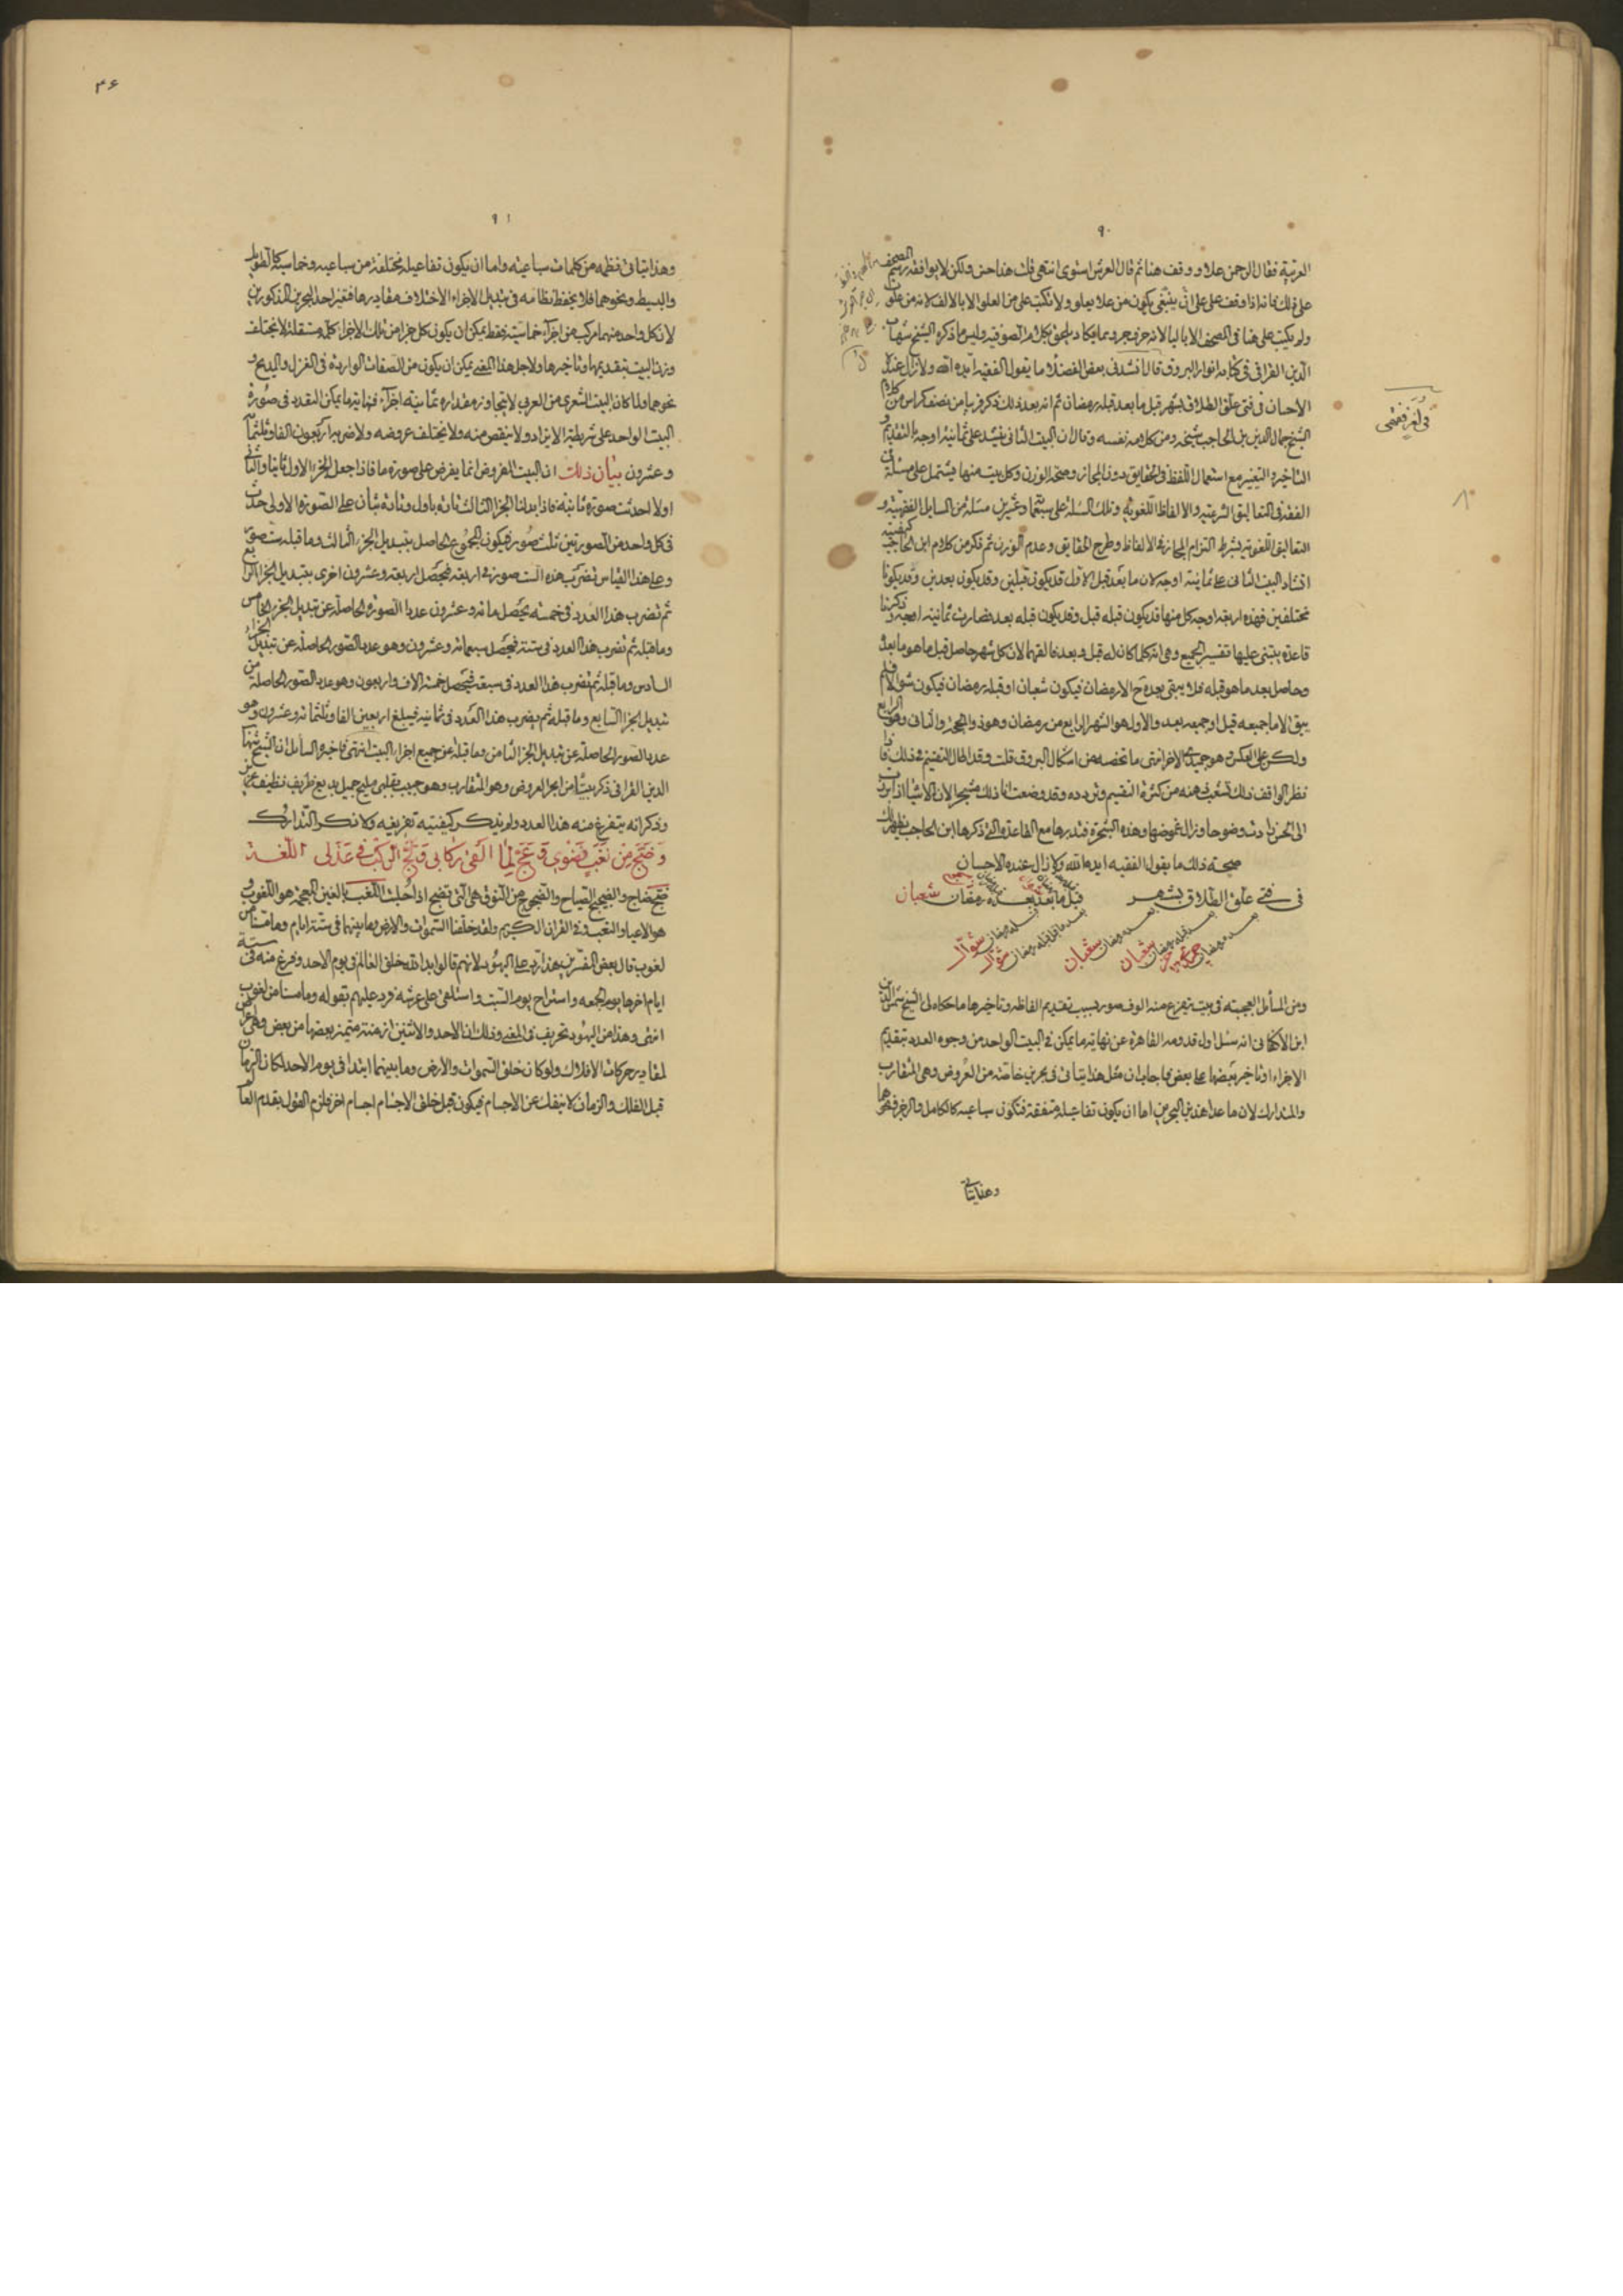 ٩٠
العربية فقال الرحمن علا ووقف هنا ثم قال العرش استوى انتهى قلت هذا حسن ولكن لا يوافقه رسم المصحف
على ذلك فانه اذا وقف على على انى ينبغي يكون من علا يعلو ولا تكتب على من العلو الا بالالف لانه من علوت
ولم يكتب على هنا في المصحف الا باليا لانه حرف جر ومما يكاد يلحق بكلام الصوفيه وليس ما ذكره الشيخ شهاب
الدين القرافي في كتابه انوار البروق قال انشدني بعض الفضلاء ما يقول الفقيه ايده الله ولا زال عنده
الاحسان في فتى علق الطلاق بشهر قبل ما بعد قبله رمضان ثم انه بعد ذلك ذكر قريبا من نصف كراس من كلام
الشيخ جمال الدين بن الحاجب شيخه ومن كلامه نفسه وقال ان البيت الثاني ينشد على ثمانية اوجه بالتقديم و
التاخير والتغيير مع استعمال اللفظ في الحقايق دون المجاز وصحة الوزن وكل بيت منها يشتمل على مسئلة من
الفقه في التعاليق الشرعيه والالفاظ اللغويه وتلك المسئلة على سبعماية وعشرين مسئلة من المسايل الفقهية و
التعاليق اللغوية بشرط التزام المجاز في الالفاظ وطرح الحقايق وعدم الوزن ثم ذكر من كلام ابن الحاجب كيفية
انشاد البيت الثاني على ثمانية اوجه لان ما بعد قبل الاول قد يكون قبلين وقد يكون بعدين وقد يكونا
مختلفين فهذه اربعة اوجه كل منها قد يكون قبله قبل وقد يكون قبله بعد فصارت ثمانية اوجه وذكر لنا
قاعدة ينبني عليها تفسير الجميع وهي انه كلما كان له قبل وبعد فالغهما لان كل شهر حاصل قبل ما هو بعد
وحاصل بعد ما هو قبله فلا يبقى بعده ح الا رمضان فيكون شعبان او قبله رمضان فيكون شوالا فلم
يبق الا ما جميعه قبل او جميعه بعد والاول هو الشهر الرابع من رمضان وهو ذو الحجة والثاني هو الرابع
ولكن على العكس وهو جميدى الاخر انتهى ما تخصه من اشكال البروق قلت وقد اطال التقسيم في ذلك فاذا
نظر الواقف ذلك تشعب ذهنه من كثرة التقسيم وتردده وقد وضعت انا ذلك مشجرا لان الاشيا اذا برزت
الى الحس زادت وضوحا وزال غموضها وهذه الشجرة فتدبرها مع القاعدة التي ذكرها ابن الحاجب يظهر لك
صحة ذلك ما يقول الفقيه ايده الله ولا زال عنده الاحسان
في فتى علق الطلاق بشهر قبل ما بعد بعده رمضان شعبان
شوال
شوال
شعبان
شعبان
ومن المسائل العجيبة في بيت يتفرع منه الوف صور بسبب تقديم الفاظه وتاخيرها ما حكاه لى الشيخ شمس الدين
ابن الاكفاني انه سئل اول قدومه القاهرة عن نهاية ما يمكن في البيت الواحد من وجوه العدد بتقديم
الاجزاء او تاخير بعضها على بعض فاجاب ان مثل هذا يتأتى في بحرين خاصة من العروض وهي المتقارب
والمتدارك لان ما عدا هذين البحرين اما ان يكون تفاعيله متفقة فتكون سباعيه كالكامل والرجز ونحوهما
وهذا يتأتى
في لغز فقهي
٤٦
٩١
وهذا يتاتى نظمه من كلمات سباعية واما ان يكون تفاعيله مختلفة من سباعيه وخماسية كالطويل
والبسيط ونحوهما فلا يحفظ نظامه في تبديل الاجزاء لاختلاف مقاديرها فتعين احد البحرين المذكورين
لان كل واحد منهما مركب من اجزآء خماسية فقط يمكن ان يكون كل جزء من تلك الاجزاء كلمة مستقلة لا يختلف
وزن البيت بتقديمها وتاخيرها ولاجل هذا المعنى يمكن ان يكون من الصفات الواردة في الغزل والمديح و
نحوهما ولما كان البيت الشعري من العرب لا يتجاوز مقداره ثمانية اجزآء فنهاية ما يمكن التعدد في صورة
البيت الواحد على شريطة الا يزاد ولا ينقص منه ولا يختلف عروضه ولا ضربه اربعون الفا وثلثمأة
وعشرون بيان ذلك ان البيت المفروض انما يفرض على صورة ما فاذا جعل الجزء الاول ثانيا والثاني
اولا حدثت صورة ثانية فاذا بدلنا الجزء الثالث تارة باول وتارة بثان على الصورة الاولى حدث
في كل واحد من الصورتين ثلث صور فيكون المجموع الحاصل بتبديل الجزء الثالث وما قبله ست صور
وعلى هذا القياس تضرب هذه الست صور في اربعة فيحصل اربعة وعشرون اخرى بتبديل الجزء الرابع
ثم تضرب هذا العدد في خمسة يحصل مائة وعشرون عدد الصورة الحاصلة عن تبديل الجزء الخامس
وما قبله ثم تضرب هذا العدد في ستة فيحصل سبعمائة وعشرون وهو عدد الصور الحاصلة عن تبديل الجزء
السادس وما قبله ثم تضرب هذا العدد في سبعة فيحصل خمسة الاف واربعون وهو عدد الصور الحاصلة من
تبديل الجزء السابع وما قبله ثم يضرب هذا العدد في ثمانية فيبلغ اربعين الفا وثلثمائة وعشرون وهو
عدد الصور الحاصلة عن تبديل الجزء الثامن وما قبله عن جميع اجزاء البيت انتهى فاخبره السائل ان الشيخ شهاب
الدين القرافي ذكر بيتا من ابحر العروض وهو المتقارب وهو حبيب بقلبي مليح جميل بديع ظريف نظيف
وذكر انه يتفرع منه هذا العدد ولم يذكر كيفية تفريقه ولا ذكر التدارك
وَضَجَّ مِن لَغَبٍ نِضوِي وَعَجَّ لِمَا أَلقَى رِكَابِي وَلَجَّ الرَّكبُ فِي عَذَلِي اللغة
ضج ضجاج والضجيج الصياح والضجوج من النوق هي التي تضج اذا حلبت اللغب بالغين المعجمة هو اللغوب و
هو الاعياء والتعب وفي القران الكريم ولقد خلقنا السموات والارض وما بينهما في ستة ايام وما مسنا من
لغوب قال بعض المفسرين هذا رد على اليهود لانهم قالوا بدا الله خلق العالم في يوم الاحد وفرغ منه في ستة
ايام اخرها يوم الجمعه واستراح يوم السبت واستلقى على عرشه فرد عليهم بقوله وما مسنا من لغوب
انتهى وهذا من اليهود تحريف في المعنى وذلك ان الاحد والاثنين ازمنة متميزة بعضها من بعض
لمقادير حركات الافلاك ولو كان خلق السموات والارض وما بينهما ابتدا في يوم الاحد لكان الزمان
قبل الفلك والزمان لا ينفك عن الاجسام فيكون قبل خلق الاجسام اجسام اخر فيلزم القول بقدم العا